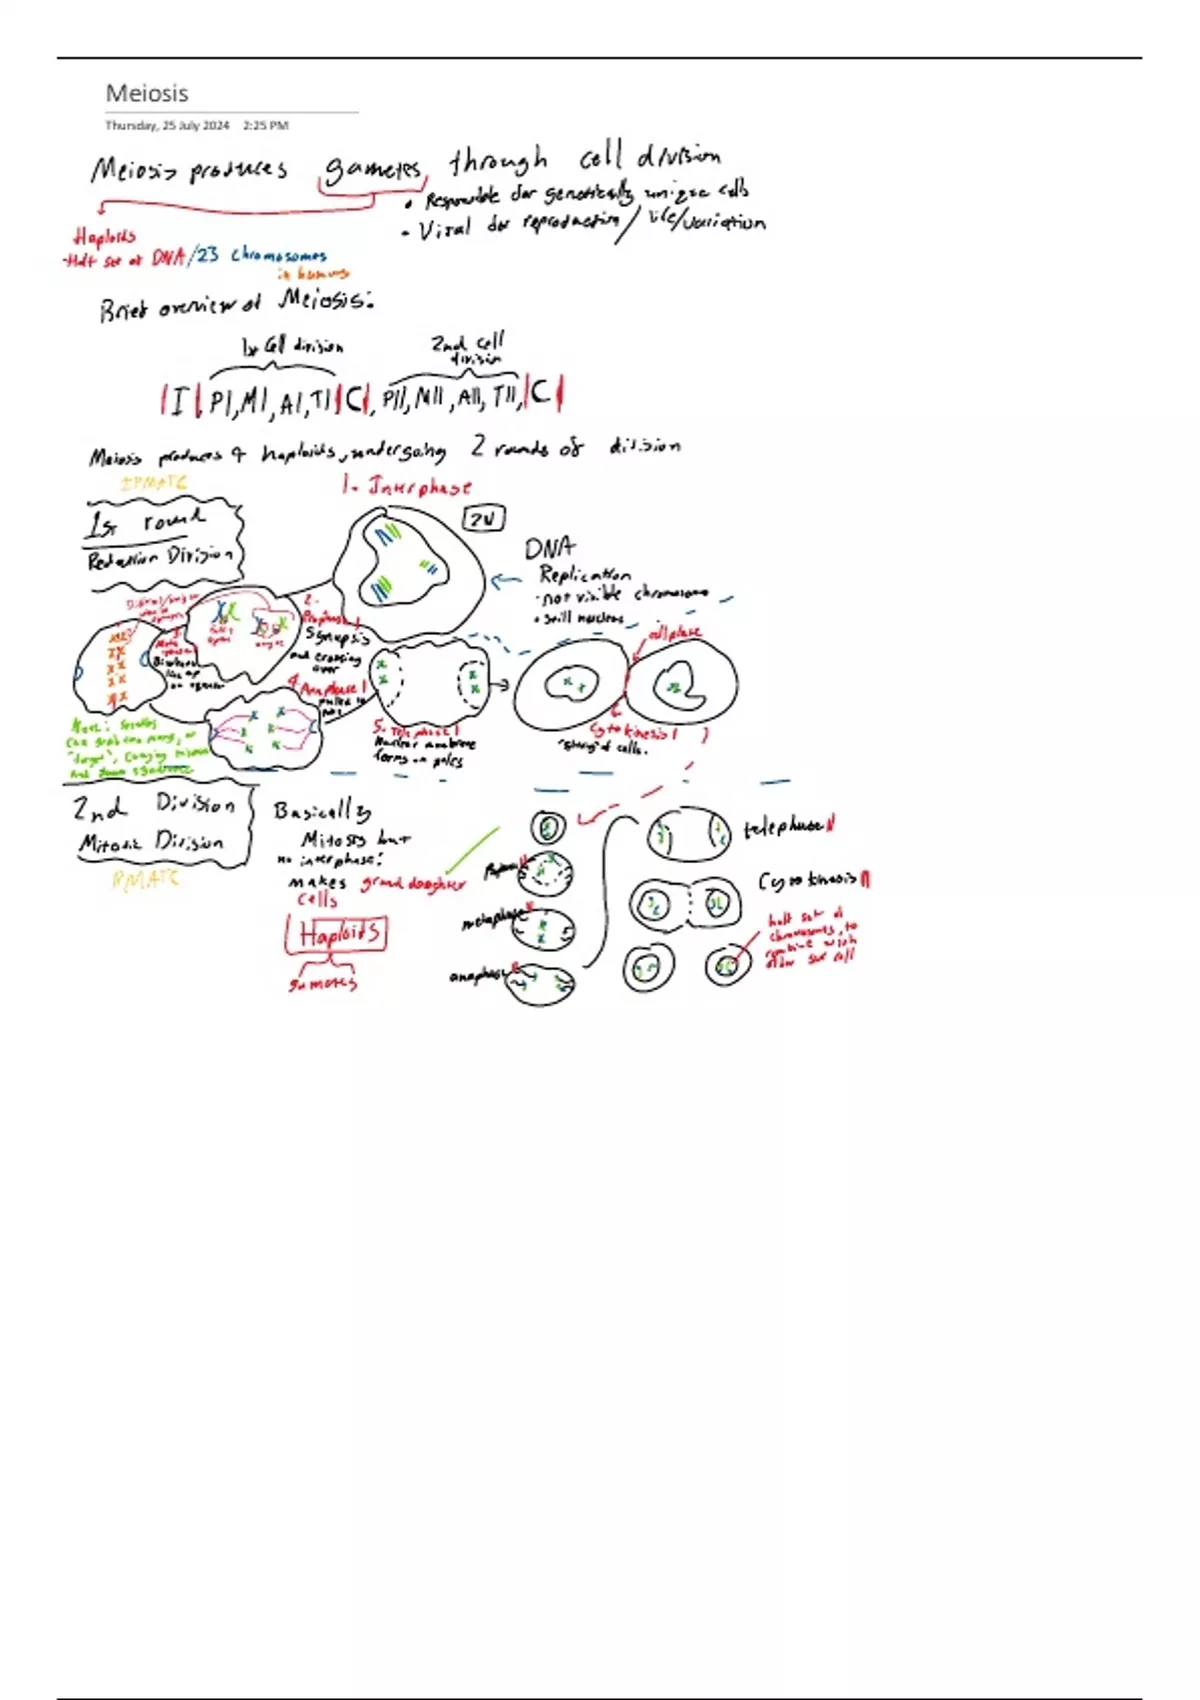 Meiosis
Thursday, 25 July 2024 2:25 PM
Meiosis produces gametes through cell division
• Responsible for genetically unique cells
• Vital for reproduction/life/variation
Haploids
-Half set of DNA/23 chromosomes
in humans
Brief overview of Meiosis:
1st Cell division
2nd cell
division
|I|, P|, M|, A|, T| |C|, P||, M||, A||, T||, |C|
Meiosis produces 4 haploids, undergoing 2 rounds of division
IPMATC
1. Interphase
1st round
Reduction Division
2N
DNA
Replication
• not visible chromosome
• still nucleus
2.
Prophase 1
Synopsis
and crossing
over
3.
Meta
phase 1
line up
on
4. Anaphase 1
pulled to
5. Telophase 1
Nuclear membrane
forms on poles
cell plate
Cytokinesis 1
of cells.
can grab too many, or
"forget", causing
and down syndrome
2nd Division
Mitotic Division
PMATC
Basically
Mitosis but
no interphase!
makes grand daughter
cells
Haploids
gametes
metaphase II
anaphase II
telephase II
Cytokinesis II
half set of
chromosomes, to
combine with
other sex cell